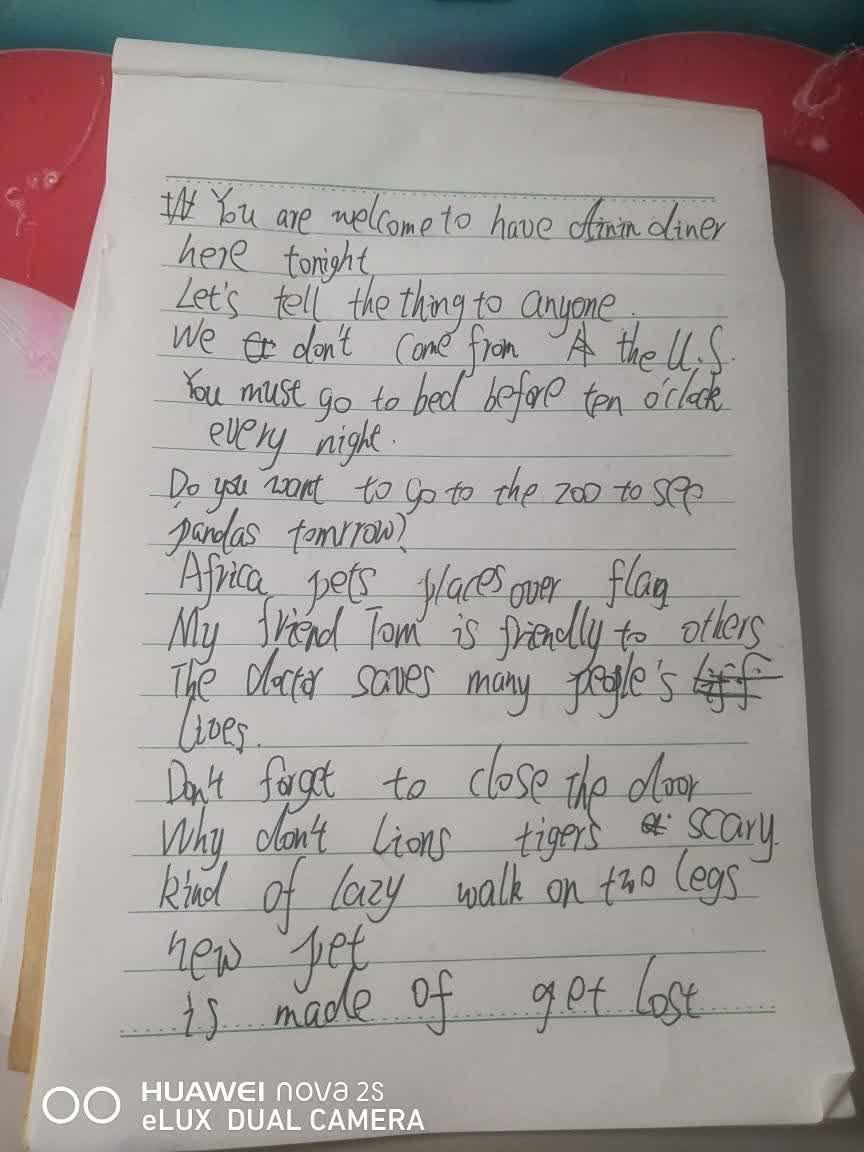 You are welcome to have diner
here tonight
Let's tell the thing to anyone.
We don't come from the U.S.
You must go to bed before ten o'clock
every night.
Do you want to go to the zoo to see
pandas tomrrow?
Africa pets places over flag
My friend Tom is friendly to others
The doctor saves many people's
lives.
Don't forget to close the door
Why don't lions tigers scary.
kind of lazy walk on two legs
new pet
is made of get lost
HUAWEI nova 2s
eLUX DUAL CAMERA